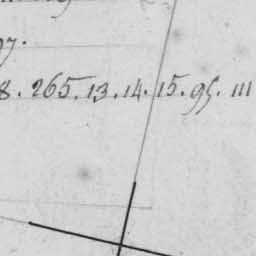 97.
8. 265. 13. 14. 15. 95. 111